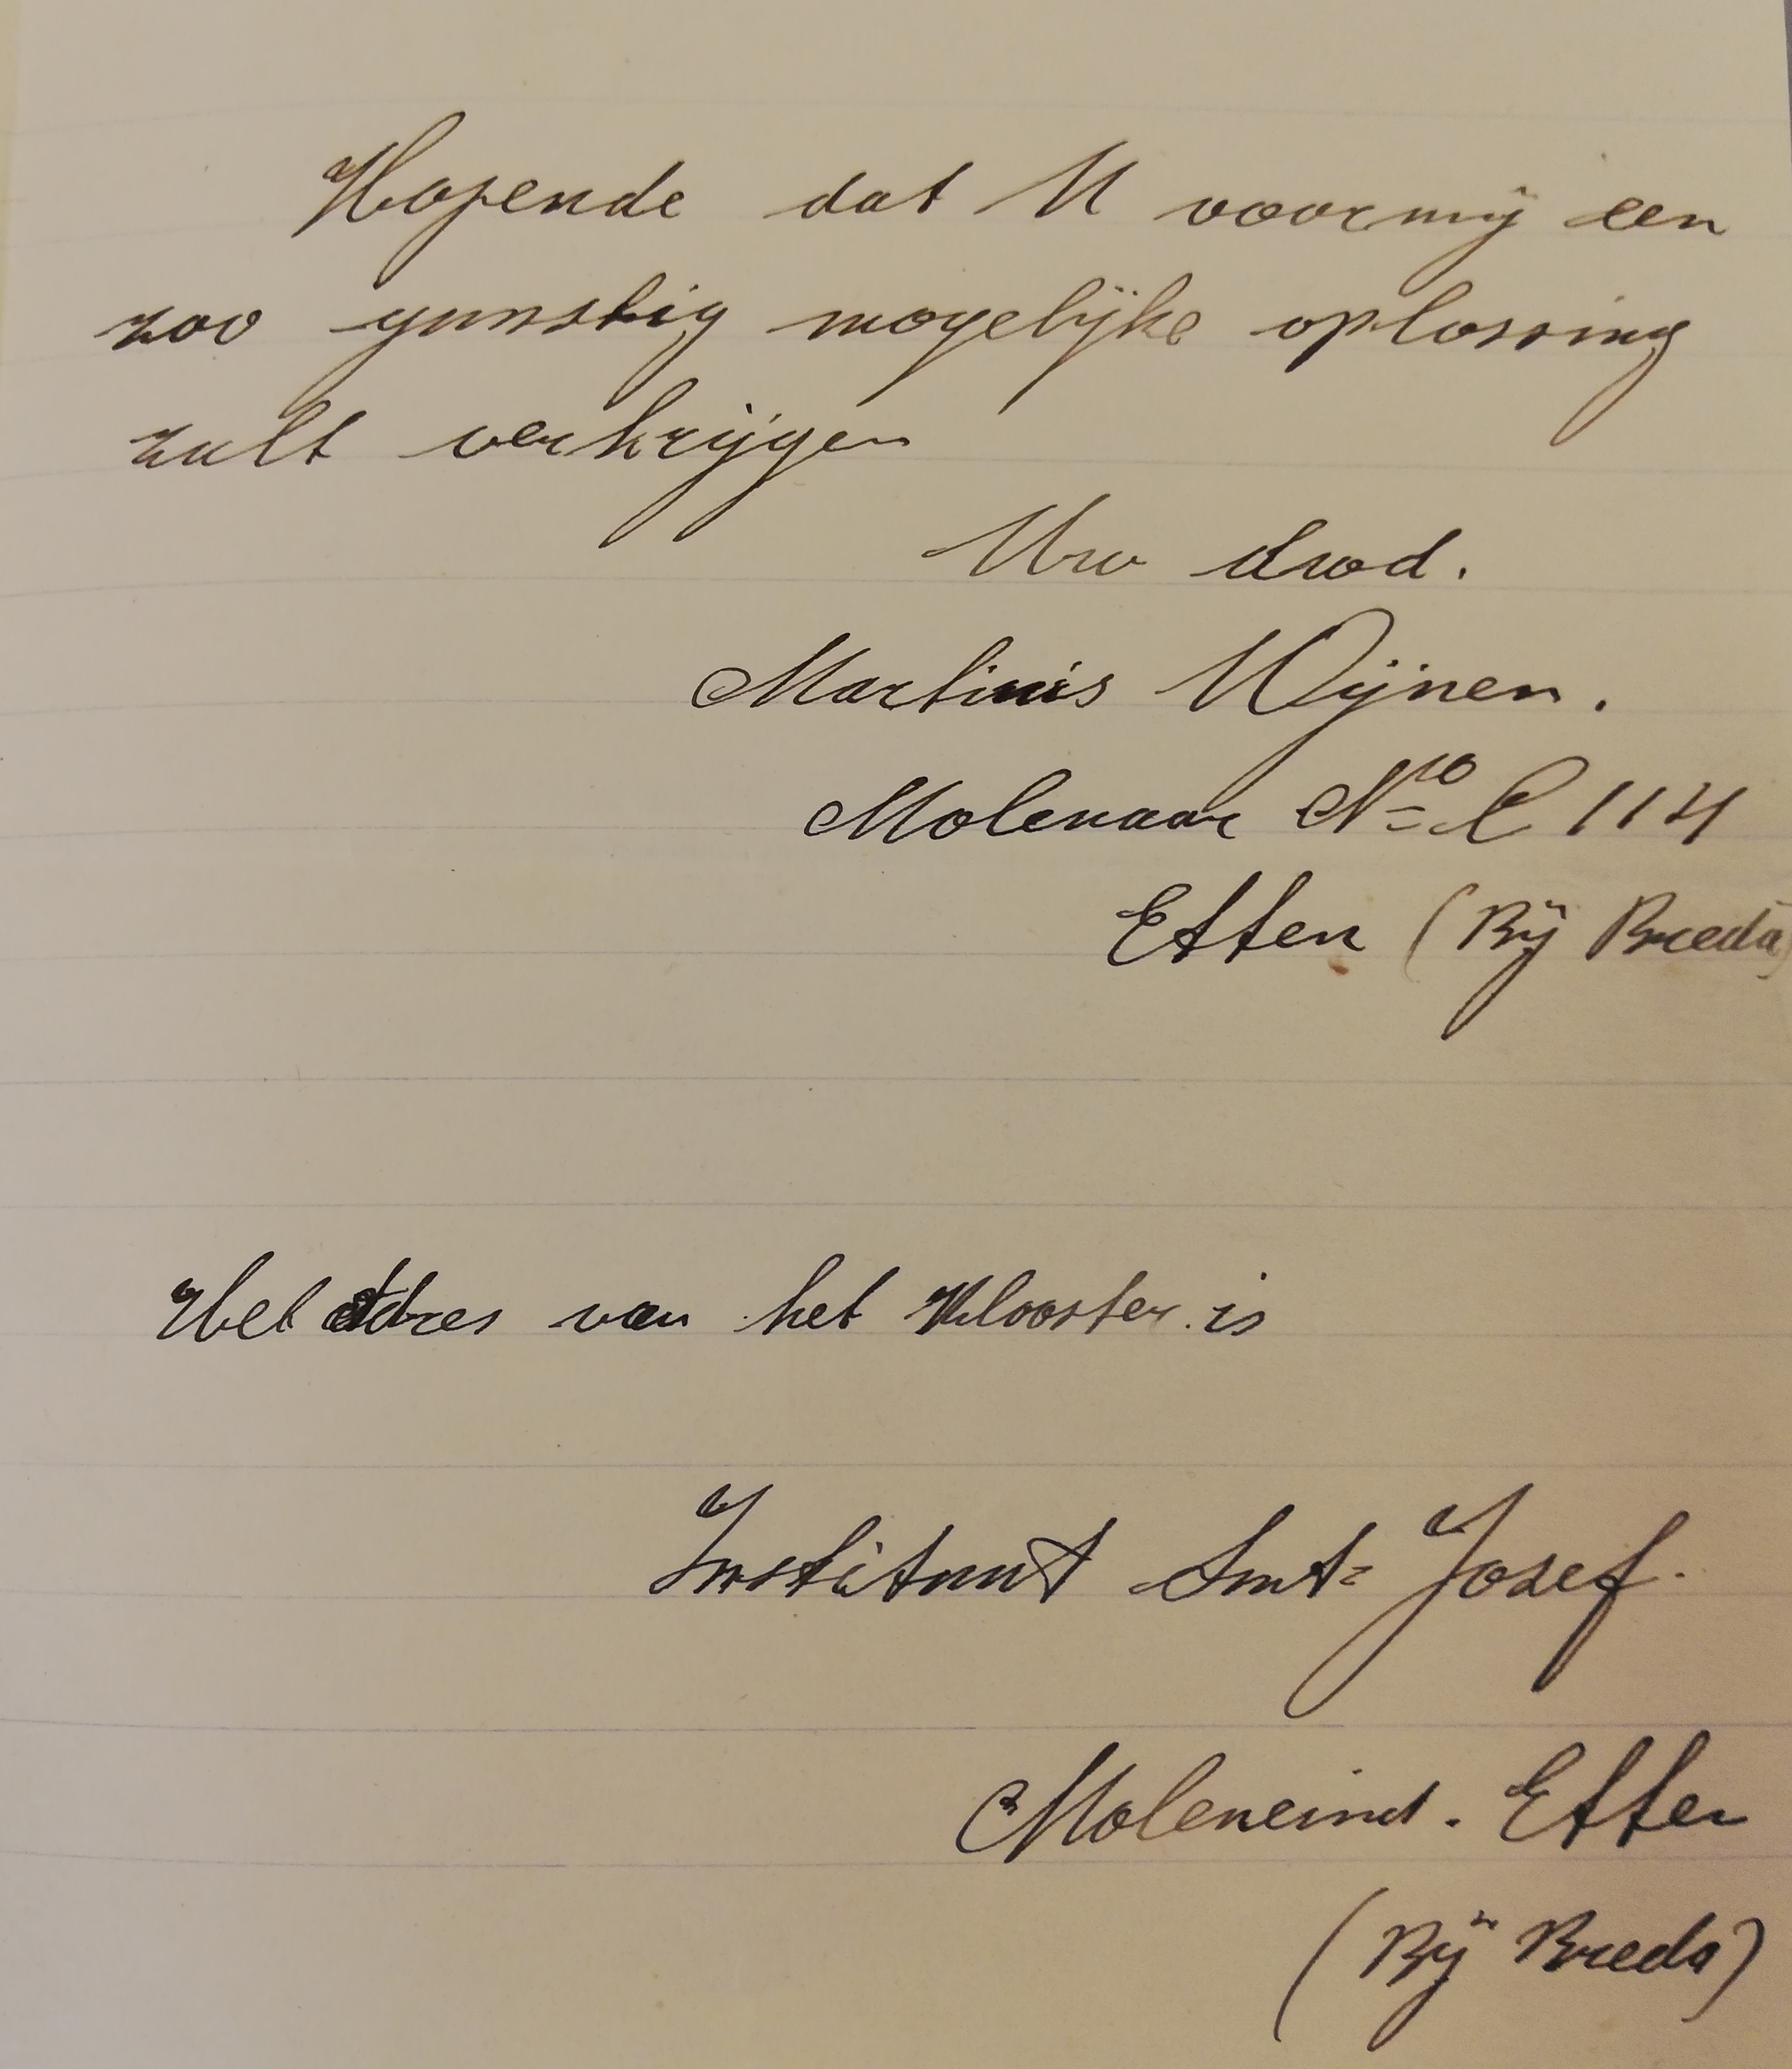 Hopende dat U voor mij een
zoo gunstig mogelijke oplossing
zult verkrijgen
Uw dwd.
Martinus Wijnen.
Molenaar No C 114
Etten (Bij Breda)
Het adres van het Klooster is
Instituut Sint Josef.
Moleneind. Etten
(Bij Breda)